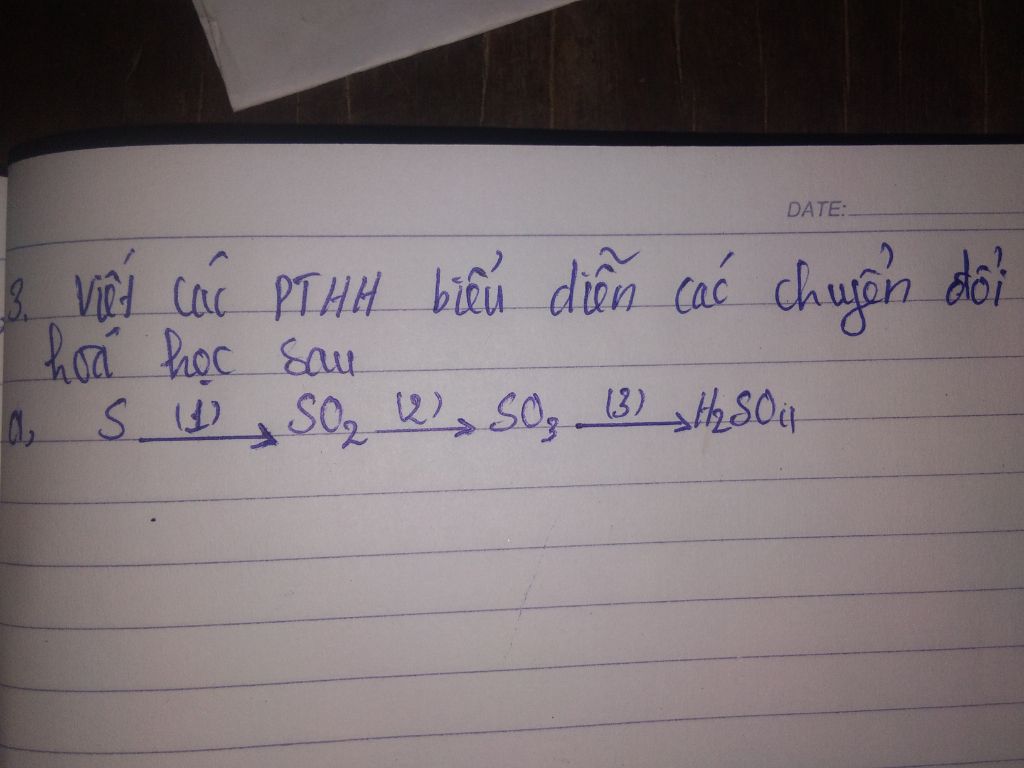 DATE:
3. Viết các PTHH biểu diễn các chuyển đổi
hoá học sau
a, S (1)→ SO2 (2)→ SO3 (3)→ H2SO4